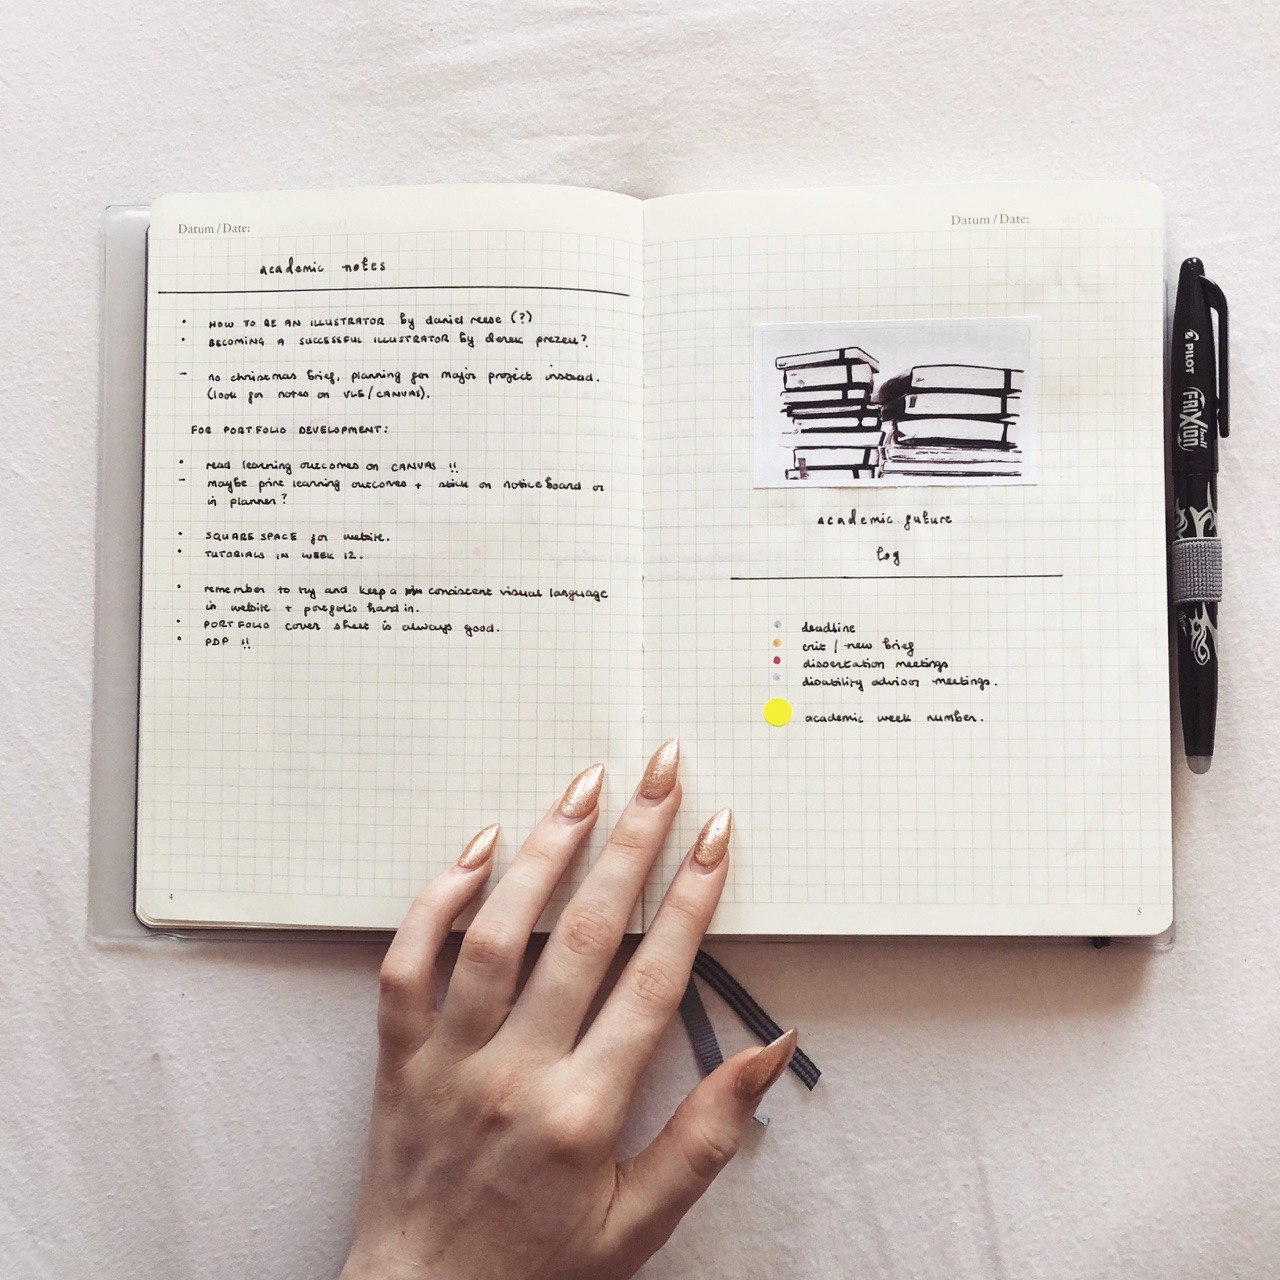 Datum/Date:
academic notes
• HOW TO BE AN ILLUSTRATOR by daniel reese (?)
• BECOMING A SUCCESSFUL ILLUSTRATOR by derek prezeu?
– no christmas brief, planning for major project instead.
(look for notes on VLE/CANVAS).
FOR PORTFOLIO DEVELOPMENT:
• read learning outcomes on CANVAS !!
– maybe print learning outcomes + stick on notice board or
in planner?
• SQUARE SPACE for website.
• TUTORIALS IN WEEK 12.
• remember to try and keep a consistent visual language
in website + portfolio hand in.
• PORTFOLIO cover sheet is always good.
• PDP !!
4
Datum/Date:
academic future
log
deadline
crit / new brief
dissertation meetings
disability advisor meetings.
academic week number.
5
PILOT
FRIXion